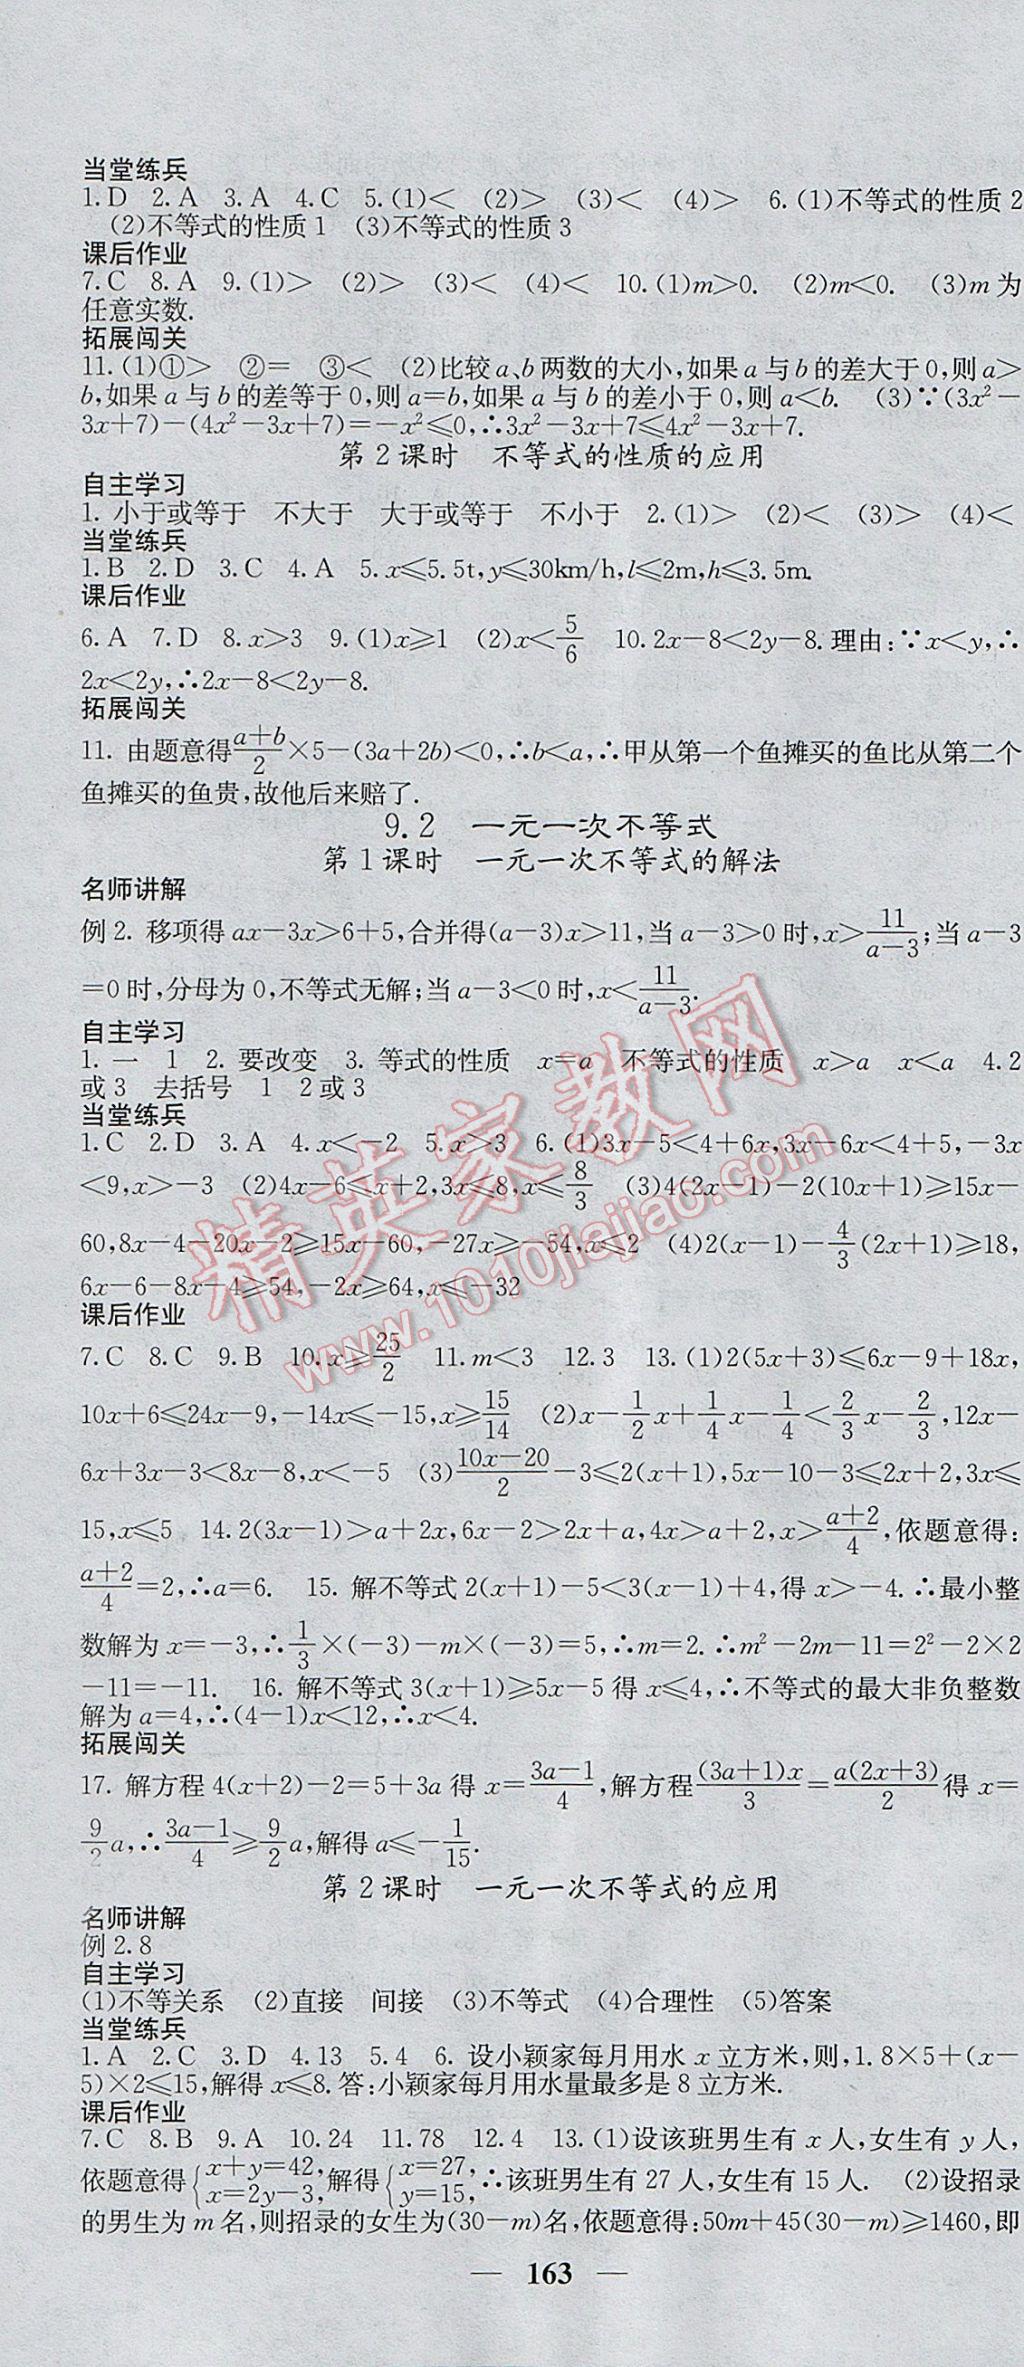 当堂练兵
1.D 2.A 3.A 4.C 5.(1)< (2)> (3)< (4)> 6.(1)不等式的性质2
(2)不等式的性质1 (3)不等式的性质3
课后作业
7.C 8.A 9.(1)> (2)> (3)< (4)< 10.(1)m>0. (2)m<0. (3)m为
任意实数.
拓展闯关
11.(1)①> ②= ③< (2)比较a、b两数的大小,如果a与b的差大于0,则a>
b,如果a与b的差等于0,则a=b,如果a与b的差小于0,则a<b. (3)∵(3x²-
3x+7)-(4x²-3x+7)=-x²≤0,∴3x²-3x+7≤4x²-3x+7.
第2课时 不等式的性质的应用
自主学习
1. 小于或等于 不大于 大于或等于 不小于 2.(1)> (2)< (3)> (4)<
当堂练兵
1.B 2.D 3.C 4.A 5.x≤5.5t,y≤30km/h,l≤2m,h≤3.5m.
课后作业
6.A 7.D 8.x>3 9.(1)x≥1 (2)x<5/6 10.2x-8<2y-8.理由:∵x<y,∴
2x<2y,∴2x-8<2y-8.
拓展闯关
11. 由题意得(a+b)/2×5-(3a+2b)<0,∴b<a,∴甲从第一个鱼摊买的鱼比从第二个
鱼摊买的鱼贵,故他后来赔了.
9.2 一元一次不等式
第1课时 一元一次不等式的解法
名师讲解
例2. 移项得ax-3x>6+5,合并得(a-3)x>11,当a-3>0时,x>11/(a-3);当a-3
=0时,分母为0,不等式无解;当a-3<0时,x<11/(a-3).
自主学习
1. 一 1 2. 要改变 3. 等式的性质 x=a 不等式的性质 x>a x<a 4.2
或3 去括号 1 2或3
当堂练兵
1.C 2.D 3.A 4.x<-2 5.x>3 6.(1)3x-5<4+6x,3x-6x<4+5,-3x
<9,x>-3 (2)4x-6≤x+2,3x≤8,x≤8/3 (3)4(2x-1)-2(10x+1)≥15x-
60,8x-4-20x-2≥15x-60,-27x≥-54,x≤2 (4)2(x-1)-4/3(2x+1)≥18,
6x-6-8x-4≥54,-2x≥64,x≤-32
课后作业
7.C 8.C 9.B 10.x≥25/2 11.m<3 12.3 13.(1)2(5x+3)≤6x-9+18x,
10x+6≤24x-9,-14x≤-15,x≥15/14 (2)x-1/2x+1/4x-1/4<2/3x-2/3,12x-
6x+3x-3<8x-8,x<-5 (3)(10x-20)/2-3≤2(x+1),5x-10-3≤2x+2,3x≤
15,x≤5 14.2(3x-1)>a+2x,6x-2>2x+a,4x>a+2,x>(a+2)/4,依题意得:
(a+2)/4=2,∴a=6. 15. 解不等式2(x+1)-5<3(x-1)+4,得x>-4.∴最小整
数解为x=-3,∴1/3×(-3)-m×(-3)=5,∴m=2.∴m²-2m-11=2²-2×2
-11=-11. 16. 解不等式3(x+1)≥5x-5得x≤4,∴不等式的最大非负整数
解为a=4,∴(4-1)x<12,∴x<4.
拓展闯关
17. 解方程4(x+2)-2=5+3a得x=(3a-1)/4,解方程(3a+1)x/3=a(2x+3)/2得x=
9/2a,∴(3a-1)/4≥9/2a,解得a≤-1/15.
第2课时 一元一次不等式的应用
名师讲解
例2.8
自主学习
(1)不等关系 (2)直接 间接 (3)不等式 (4)合理性 (5)答案
当堂练兵
1.A 2.C 3.D 4.13 5.4 6. 设小颖家每月用水x立方米,则,1.8×5+(x-
5)×2≤15,解得x≤8.答:小颖家每月用水量最多是8立方米.
课后作业
7.C 8.B 9.A 10.24 11.78 12.4 13.(1)设该班男生有x人,女生有y人,
依题意得{x+y=42, x=2y-3,解得{x=27, y=15,∴该班男生有27人,女生有15人. (2)设招录
的男生为m名,则招录的女生为(30-m)名,依题意得:50m+45(30-m)≥1460,即
— 163 —
精英家教网
www.1010jiajiao.com